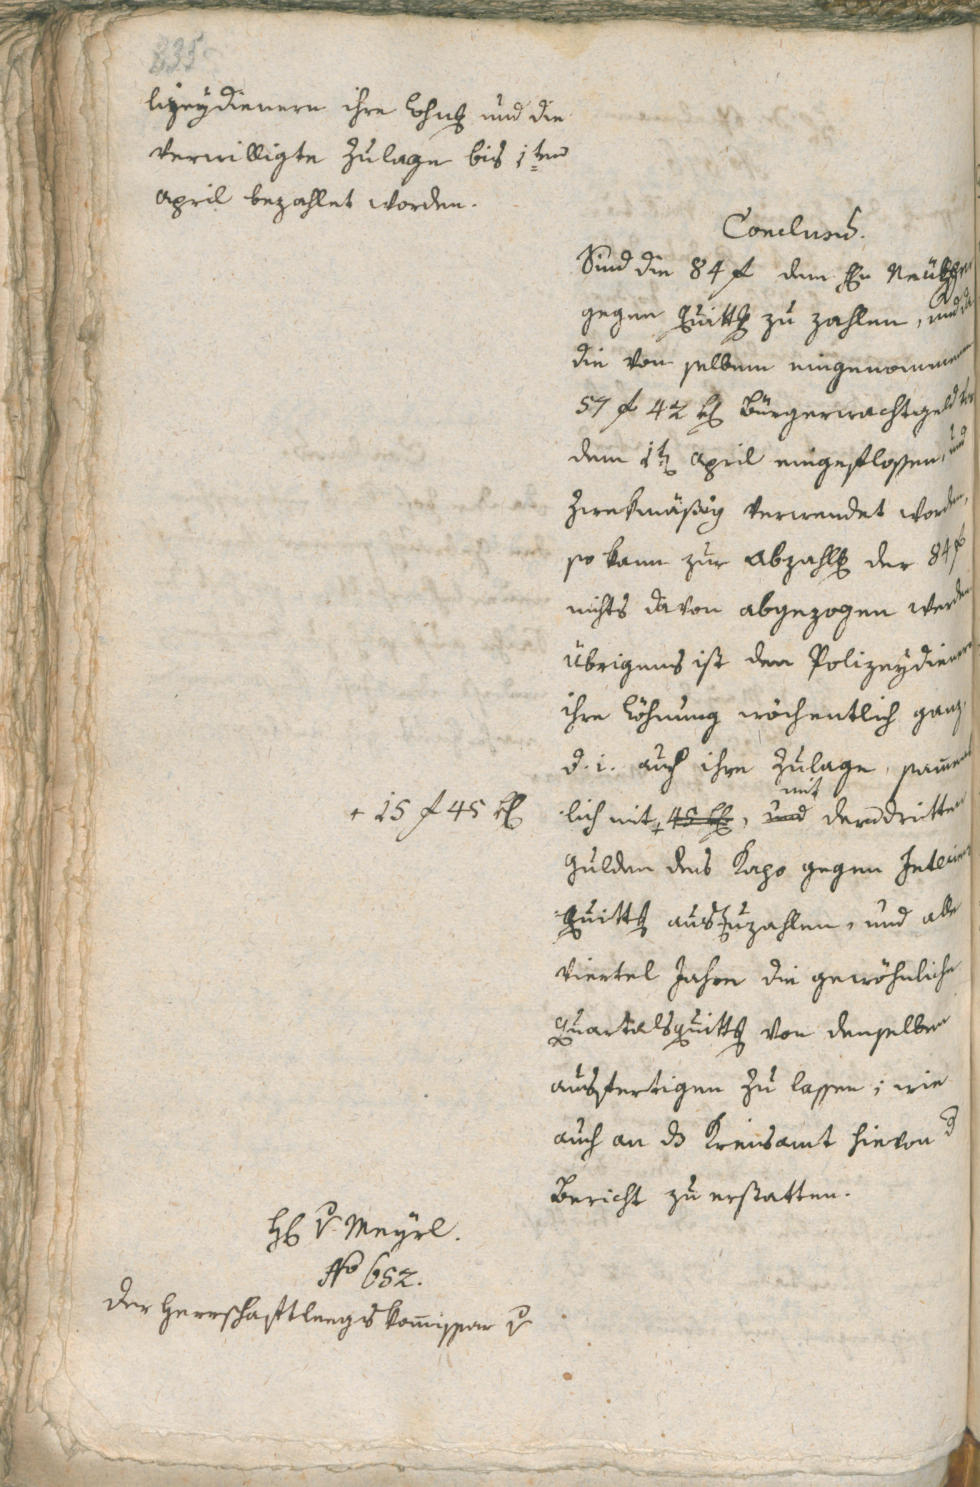 835
lizeydienern ihre Lohng und die
verwilligte Zulage bis 1ten
April bezahlet worden.
Conclusum.
Sind die 84 f dem Hn
gegen Quittg zu zahlen, und da
die von selbem eingenommenen
57 f 42 xr Bürgerwachtgeld vor
dem 1t April eingeflossen, und
zwekmäßig verwendet worden,
so kann zur Abzahlg der 84 f
nichts davon abgezogen werden
übrigens ist den Polizeydienern
ihre Löhnung wöchentlich ganz,
d. i. auch ihre Zulage, sament
+ 15 f 45 xr
lich mit + 45 xr, und mit dem dritten
Gulden des Kapo gegen Interims
Quittg auszuzahlen, und alle
Viertel Jahre die gewöhnliche
Quartalsquittg von denselben
ausfertigen zu lassen; wie
auch an ds Kreisamt hievon d
Bericht zu erstatten.
H v Meyrl.
No 652.
Der Herrschaftleegskommissar v